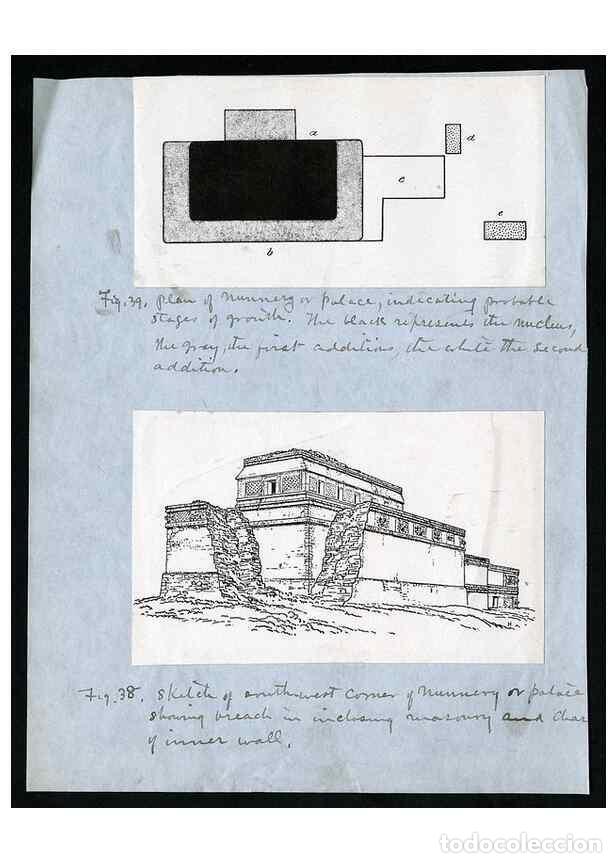 a
d
c
e
b
Fig. 39. Plan of Nunnery or Palace, indicating probable
stages of growth. The black represents the nucleus,
the gray, the first additions, the white the second
addition.
H.
Fig. 38. Sketch of southwest corner of Nunnery or palace
showing breach in inclosing masonry and char
of inner wall.
todocoleccion